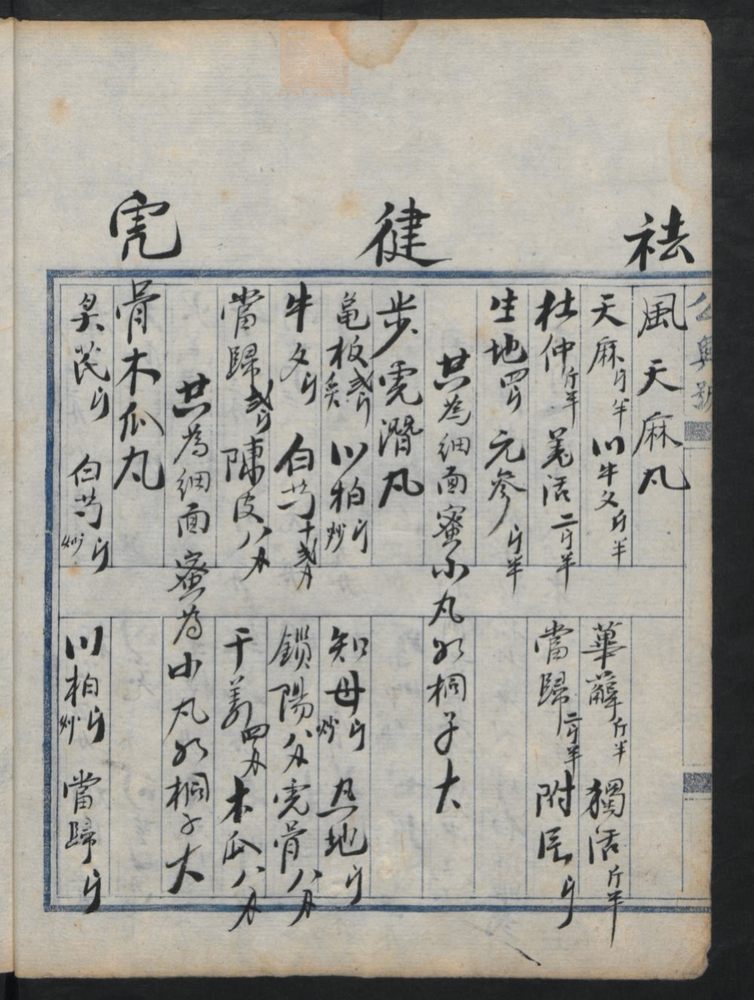 祛
風天麻丸
天麻斤半 川牛夕斤半 萆薢斤半 獨活斤半
杜仲斤半 羌活二斤半 當歸二斤半 附
生地四 元參斤半
共為細面蜜小丸如桐子大
健
步虎潛丸
龜板炙 川柏炒 知母炒 熟地
牛夕 白芍 鎖陽八分 虎骨八分
當歸 陳皮八分 干姜四分 木瓜八分
共為細面蜜為小丸如桐子大
虎
骨木瓜丸
吳茂 白芍炒 川柏炒 當歸